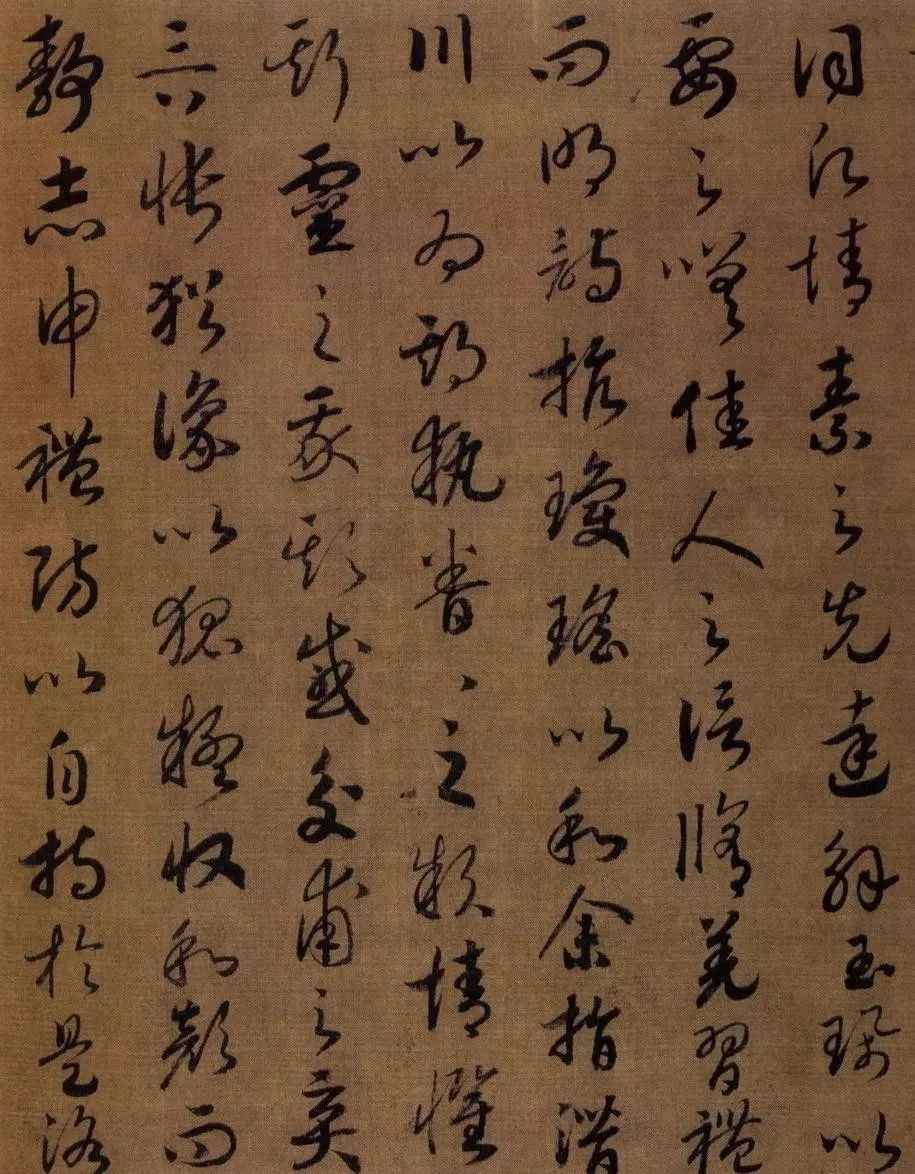 詞願情素之先達解玉珮以
要之嗟佳人之信脩羌習禮
而明詩抗瓊瑤以和余指潛
川以為期執眷々之款情懼
斯靈之我欺感交甫之棄
言悵猶豫以狐疑收和顏而
靜志申禮防以自持於是洛